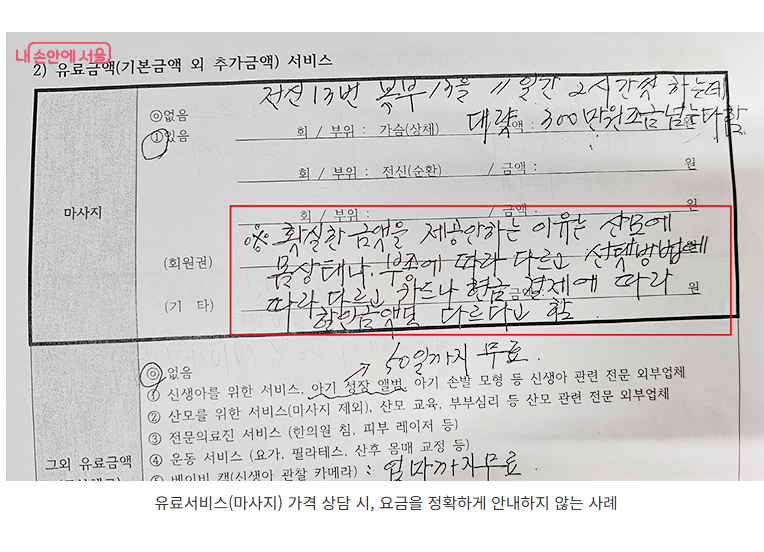 내 손안에 서울
2) 유료금액(기본금액 외 추가금액) 서비스
전신 13번 복부 13을 11일간 2시간씩 하는데
◎없음
대략 300만원조금넘는다함
①있음 회 / 부위 : 가슴(상체) 금액 :
회 / 부위 : 전신(순환) / 금액 : 원
마사지
회 / 부위 : / 금액 : 원
※ 확실한 금액을 제공안하는 이유는 산모에
(회원권) 몸상태나, 부종에 따라 다르고 선택방법에
(기 타) 따라 다르고 카드나 현금 결제에 따라 원
할인금액도 다르다고 함
→ 50일까지 무료.
◎없음
① 신생아를 위한 서비스, 아기 성장 앨범, 아기 손발 모형 등 신생아 관련 전문 외부업체
② 산모를 위한 서비스(마사지 제외), 산모 교육, 부부심리 등 산모 관련 전문 외부업체
③ 전문의료진 서비스 (한의원 침, 피부 레이저 등)
그외 유료금액 ④ 운동 서비스 (요가, 필라테스, 산후 몸매 교정 등)
⑤ 베이비 캠(신생아 관찰 카메라) : 엄마까지무료.
유료서비스(마사지) 가격 상담 시, 요금을 정확하게 안내하지 않는 사례